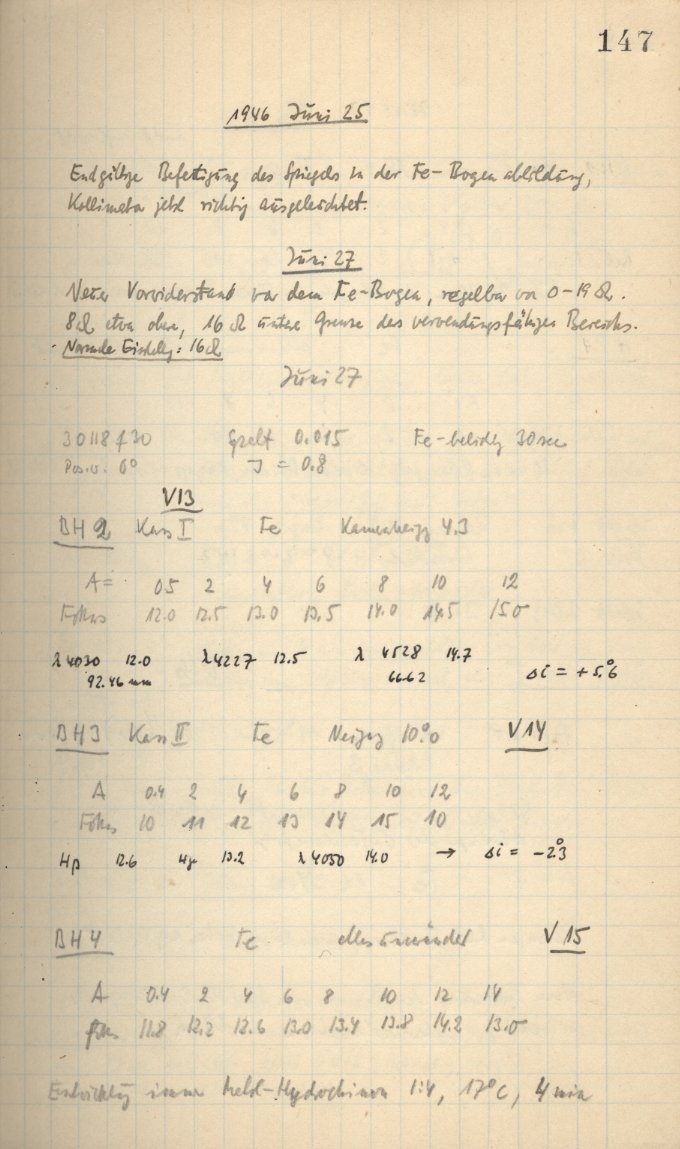 147
1946 Juni 25
Endgültige Befestigung des Spiegels in der Fe-Bogen abbildung,
Kollimator jetzt richtig ausgeleuchtet.
Juni 27
Neuer Vorwiderstand vor dem Fe-Bogen, regelbar von 0-19 Ω.
8Ω etwa obere, 16 Ω untere Grenze des verwendungsfähigen Bereichs.
Normale Einstellg: 16Ω
Juni 27
Spalt 0.015 Fe-belichtg 30 sec
J = 0.8
V13
BH 2 Kass I Fe 4.3
A = 0.5 2 4 6 8 10 12
Fokus 12.0 12.5 13.0 13.5 14.0 14.5 15.0
λ 4030 12.0 λ 4227 12.5 λ 4528 14.7
92.46 mm 66.62 Δi = +5.°6
BH3 Kass II Fe Neigg 10.°0 V 14
A 0.4 2 4 6 8 10 12
Fokus 10 11 12 13 14 15 10
Hβ 12.6 Hγ 13.2 λ 4050 14.0 → Δi = -2.°3
BH 4 Fe alles unverändert V 15
A 0.4 2 4 6 8 10 12 14
Fokus 11.8 12.2 12.6 13.0 13.4 13.8 14.2 13.0
Entwicklg immer Metol-Hydrochinon 1:4, 17°C, 4 min